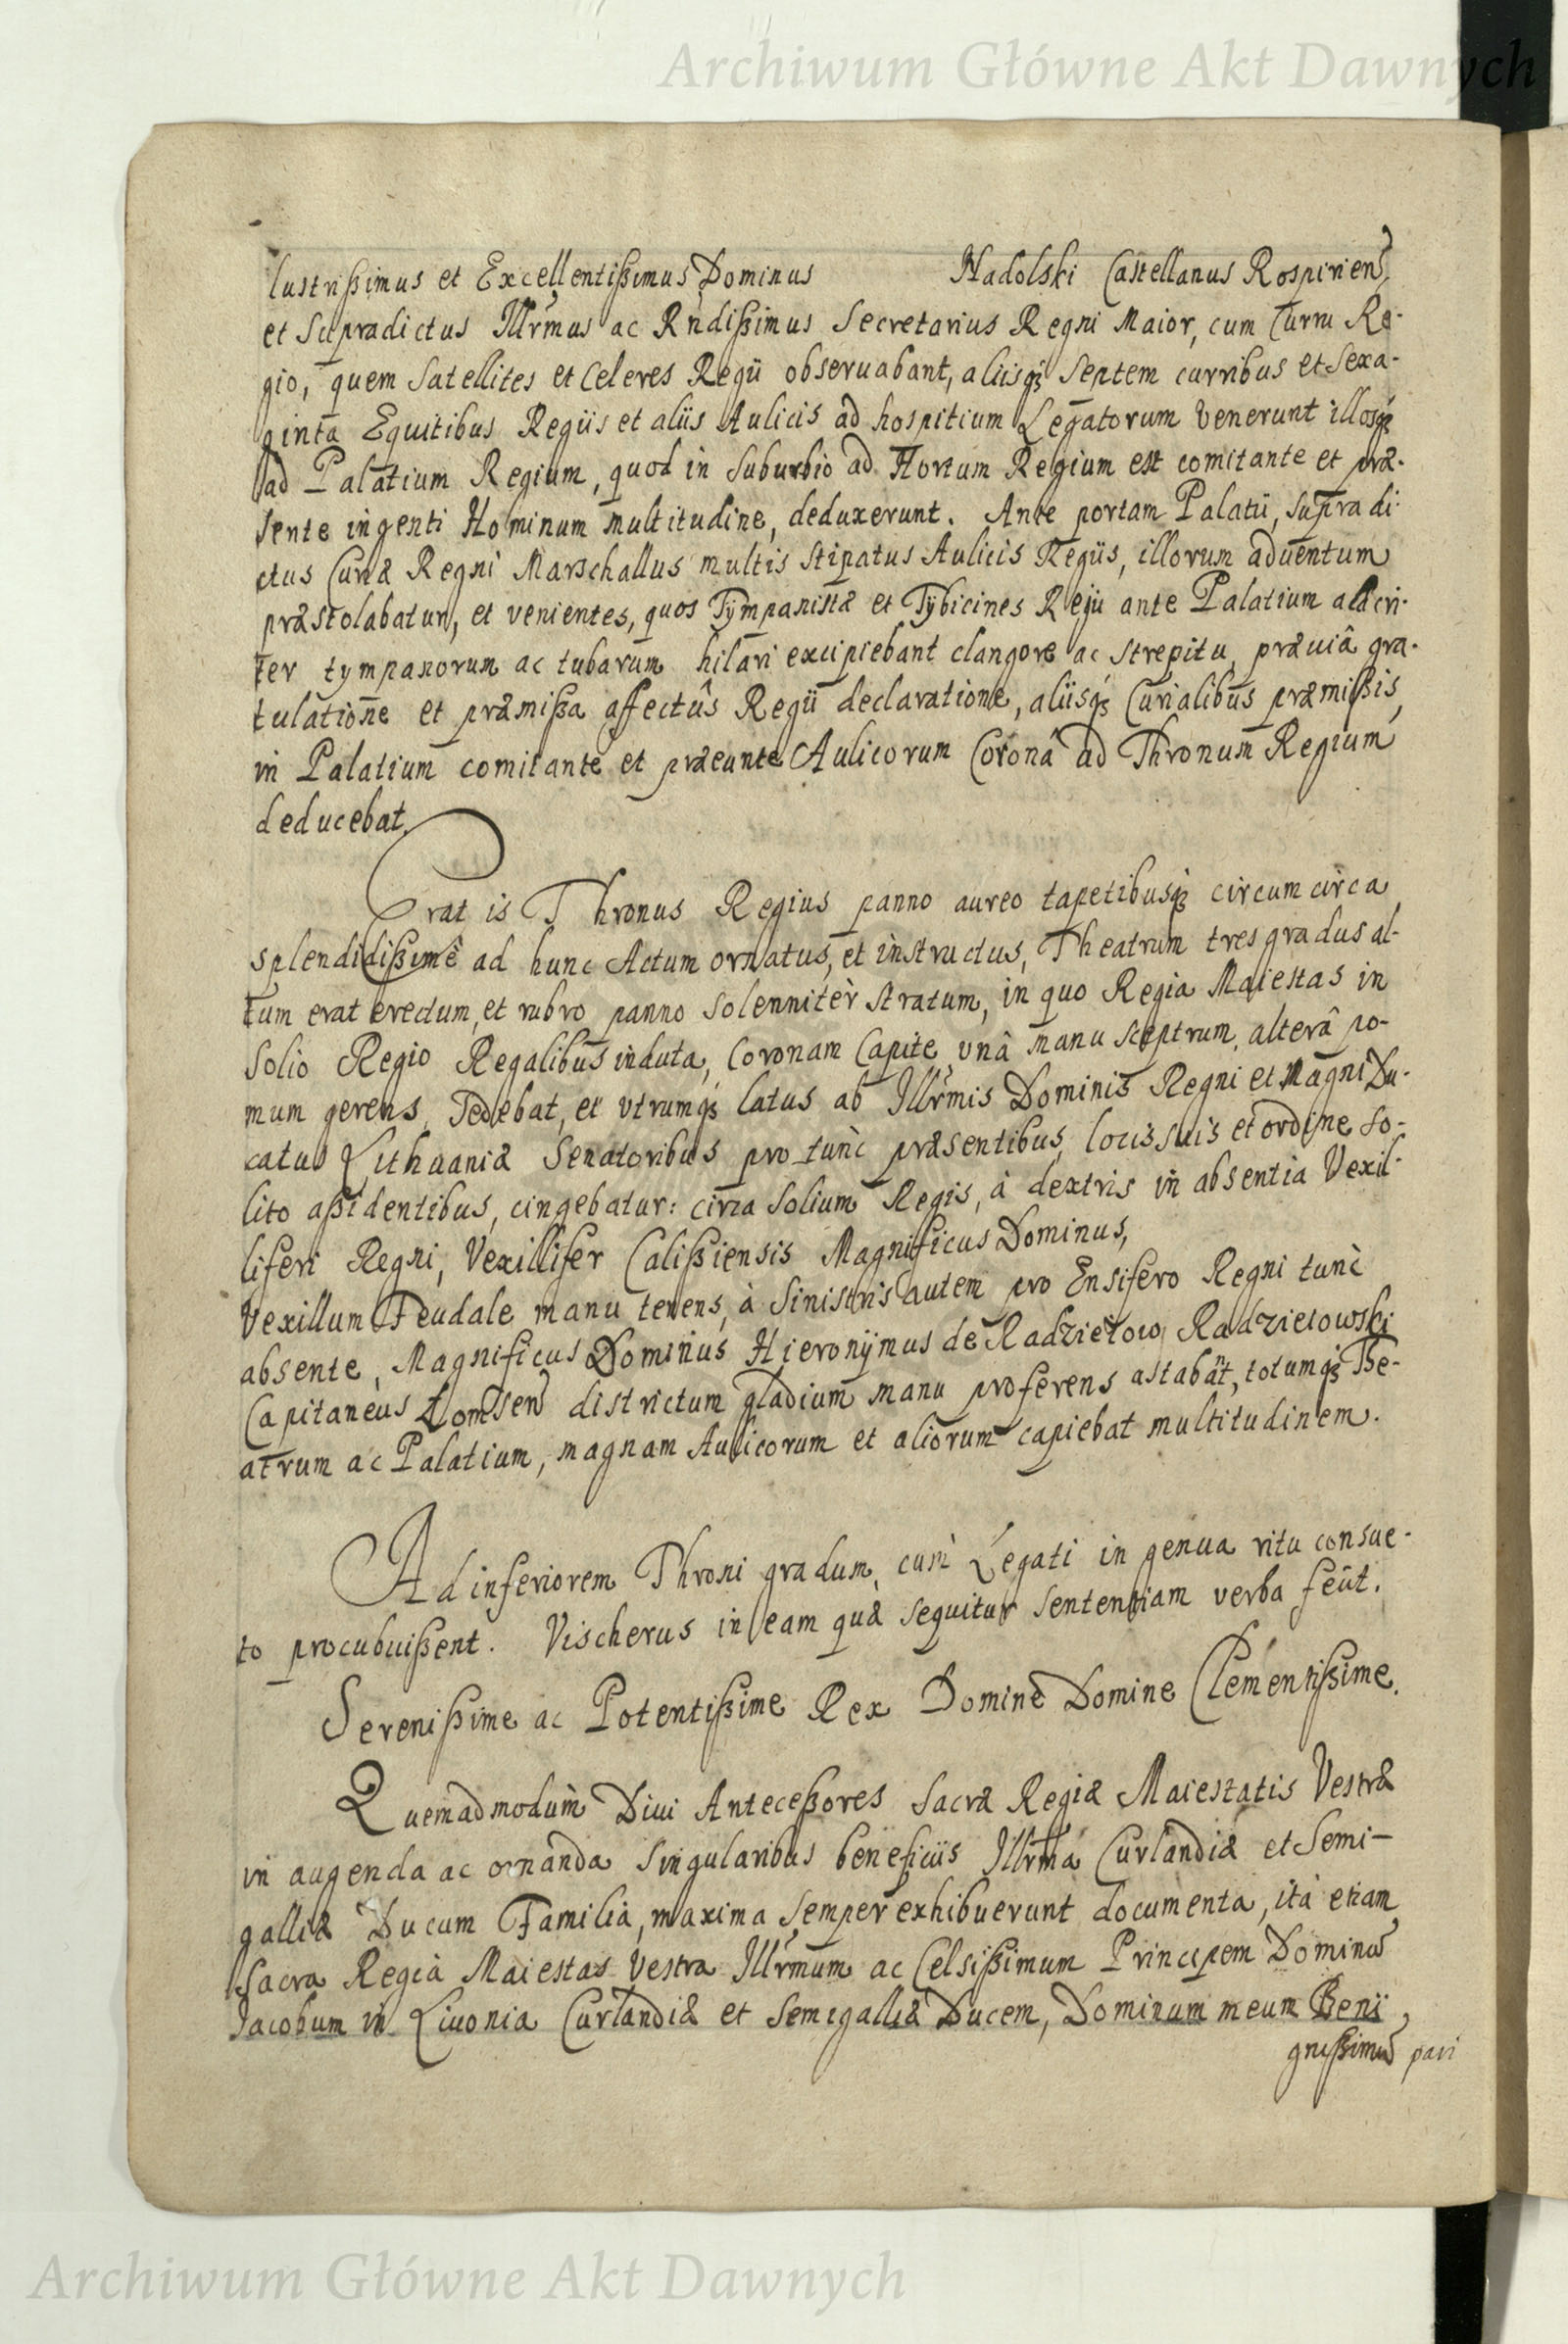 Archiwum Główne Akt Dawnych
lustrißimus et Excellentißimus Dominus Nadolski Castellanus Rospirien̄
et supradictus Illr̄mus ac Rn̄dißimus Secretarius Regni Maior, cum Curru Re-
gio, quem Satellites et Celeres Regii obseruabant, aliisq; Septem curribus et Sexa-
ginta Equitibus Regiis et aliis Aulicis ad hospitium Legatorum venerunt illosq;
ad Palatium Regium, quod in suburbio ad Hortum Regium est comitante et præ-
sente ingenti Hominum multitudine, deduxerunt. Ante portam Palatii, supra di-
ctus Curiæ Regni Marschallus multis stipatus Aulicis Regiis, illorum aduentum
præstolabatur, et venientes, quos Tympanistæ et Tybicines Regii ante Palatium alacri-
ter tympanorum ac tubarum hilari excipiebant clangore ac strepitu, præuiâ gra-
tulatione et præmißa affectûs Regii declaratione, aliisq; Curialibus præmißis,
in Palatium comitante et præeunte Aulicorum Coronâ ad Thronum Regium
deducebat.
Erat is Thronus Regius panno aureo tapetibusq; circumcirca
splendidißimè ad hunc Actum ornatus, et instructus, Theatrum tres gradus al-
tum erat erectum, et rubro panno solennitèr stratum, in quo Regia Maiestas in
Solio Regio Regalibus induta, Coronam Capite, vnâ manu sceptrum, alterâ po-
mum gerens, sedebat, et vtrumq; latus ab Illr̄mis Dominis Regni et Magni Du-
catus Lithuaniæ Senatoribus pro tunc præsentibus, locis suis et ordine so-
lito aßidentibus, cingebatur: circa Solium Regis, à dextris in absentia Vexil-
liferi Regni, Vexillifer Calißiensis Magnificus Dominus,
Vexillum Feudale manu tenens, à sinistris autem pro Ensifero Regni tunc
absente, Magnificus Dominus Hieronymus de Radzieiow Radzieiowski
Capitaneus Lomsen̄ districtum gladium manu proferens astabat, totumq; The-
atrum ac Palatium, magnam Aulicorum et aliorum capiebat multitudinem.
Ad inferiorem Throni gradum, cum Legati in genua ritu consue-
to procubuißent. Vischerus in eam quæ sequitur sententiam verba fecit.
Serenißime ac Potentißime Rex Domine Domine Clementißime.
Quemadmodùm Diui Anteceßores Sacræ Regiæ Maiestatis Vestræ
in augenda ac ornanda singularibus beneficiis Illr̄ma Curlandiæ et Semi-
galliæ Ducum Familia, maxima semper exhibuerunt documenta, ita etiam
Sacra Regia Maiestas Vestra Illr̄mum ac Celsißimum Principem Dominū
Jacobum in Liuonia Curlandiæ et Semigalliæ Ducem, Dominum meum Beni
gnißimū pari
Archiwum Główne Akt Dawnych